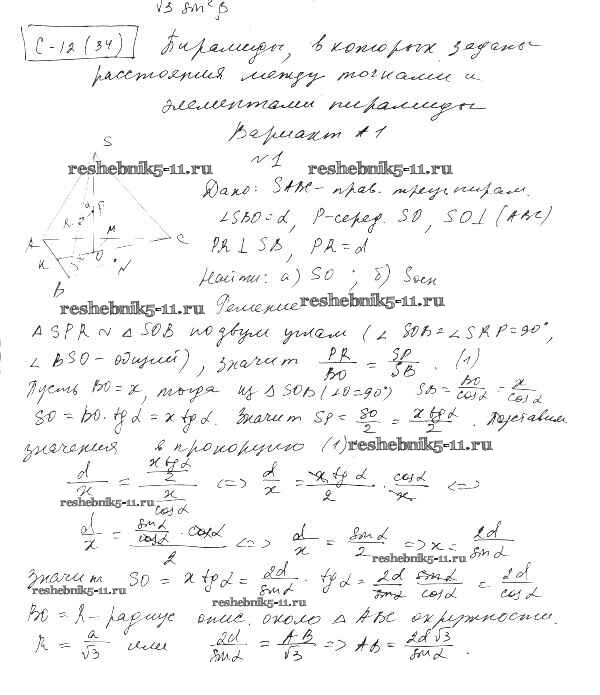 √3 sin²β
С-12 (34) Пирамиды, в которых заданы
расстояния между точками и
элементами пирамиды
Вариант №1
№1
S
reshebnik5-11.ru reshebnik5-11.ru
Дано: SABC - прав. треуг. пирам.
∠SBO = α, P - серед. SO, SO ⊥ (ABC)
PR ⊥ SB, PR = d
Найти: а) SO ; б) Sосн
R P
A M C
K O N
B
reshebnik5-11.ru Решение reshebnik5-11.ru
△ SPR ∾ △ SOB по двум углам (∠ SOB = ∠ SRP = 90°,
∠ BSO - общий), значит PR/BO = SP/SB. (1)
Пусть BO = x, тогда из △ SOB (∠O = 90°) SB = BO/cosα = x/cosα
SO = BO · tgα = x tgα. Значит SP = SO/2 = x tgα/2. Подставим
значения в пропорцию (1) reshebnik5-11.ru
d/x = (x tgα/2)/(x/cosα) <=> d/x = x tgα/2 · cosα/x <=>
reshebnik5-11.ru
d/x = (sinα/cosα · cosα)/2 <=> d/x = sinα/2 => x = 2d/sinα
reshebnik5-11.ru
Значит SO = x tgα = 2d/sinα · tgα = 2d/sinα · sinα/cosα = 2d/cosα
reshebnik5-11.ru reshebnik5-11.ru
BO = R - радиус опис. около △ ABC окружности.
R = a/√3 или 2d/sinα = AB/√3 => AB = 2d√3/sinα.